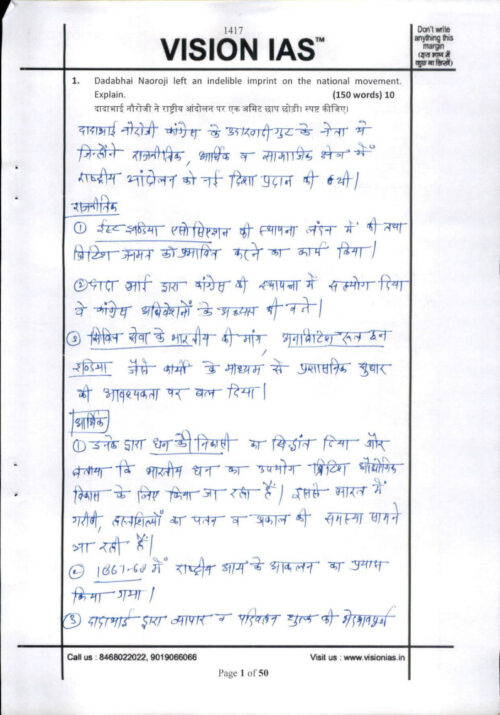 1417
VISION IAS™
Don't write
anything this
margin
(इस भाग में
कुछ ना लिखें)
1. Dadabhai Naoroji left an indelible imprint on the national movement.
Explain. (150 words) 10
दादाभाई नौरोजी ने राष्ट्रीय आंदोलन पर एक अमिट छाप छोड़ी। स्पष्ट कीजिए।
दादाभाई नौरोजी कांग्रेस के उदारवादी गुट के नेता थे
जिन्होंने राजनीतिक, आर्थिक व सामाजिक क्षेत्र में
राष्ट्रीय आंदोलन को नई दिशा प्रदान की थी।
राजनीतिक
① ईस्ट इण्डिया एसोसिएशन की स्थापना लंदन में की तथा
ब्रिटिश जनमत को प्रभावित करने का कार्य किया।
② दादा भाई द्वारा कांग्रेस की स्थापना में सहयोग दिया
वे कांग्रेस अधिवेशनों के अध्यक्ष भी बने।
③ सिविल सेवा के भारतीय की मांग, अनब्रिटिश रूल इन
इण्डिया जैसे कार्यों के माध्यम से प्रशासनिक सुधार
की आवश्यकता पर बल दिया।
आर्थिक
① उनके द्वारा धन की निकासी का सिद्धांत दिया और
बताया कि भारतीय धन का उपयोग ब्रिटिश औद्योगिक
विकास के लिए किया जा रहा है। इससे भारत में
गरीबी, हस्तशिल्पों का पतन व अकाल की समस्या सामने
आ रही है।
② 1867-68 में राष्ट्रीय आय के आकलन का प्रयास
किया गया।
③ दादाभाई द्वारा व्यापार व परिवहन शुल्क की भेदभावपूर्ण
Call us : 8468022022, 9019066066 Visit us : www.visionias.in
Page 1 of 50